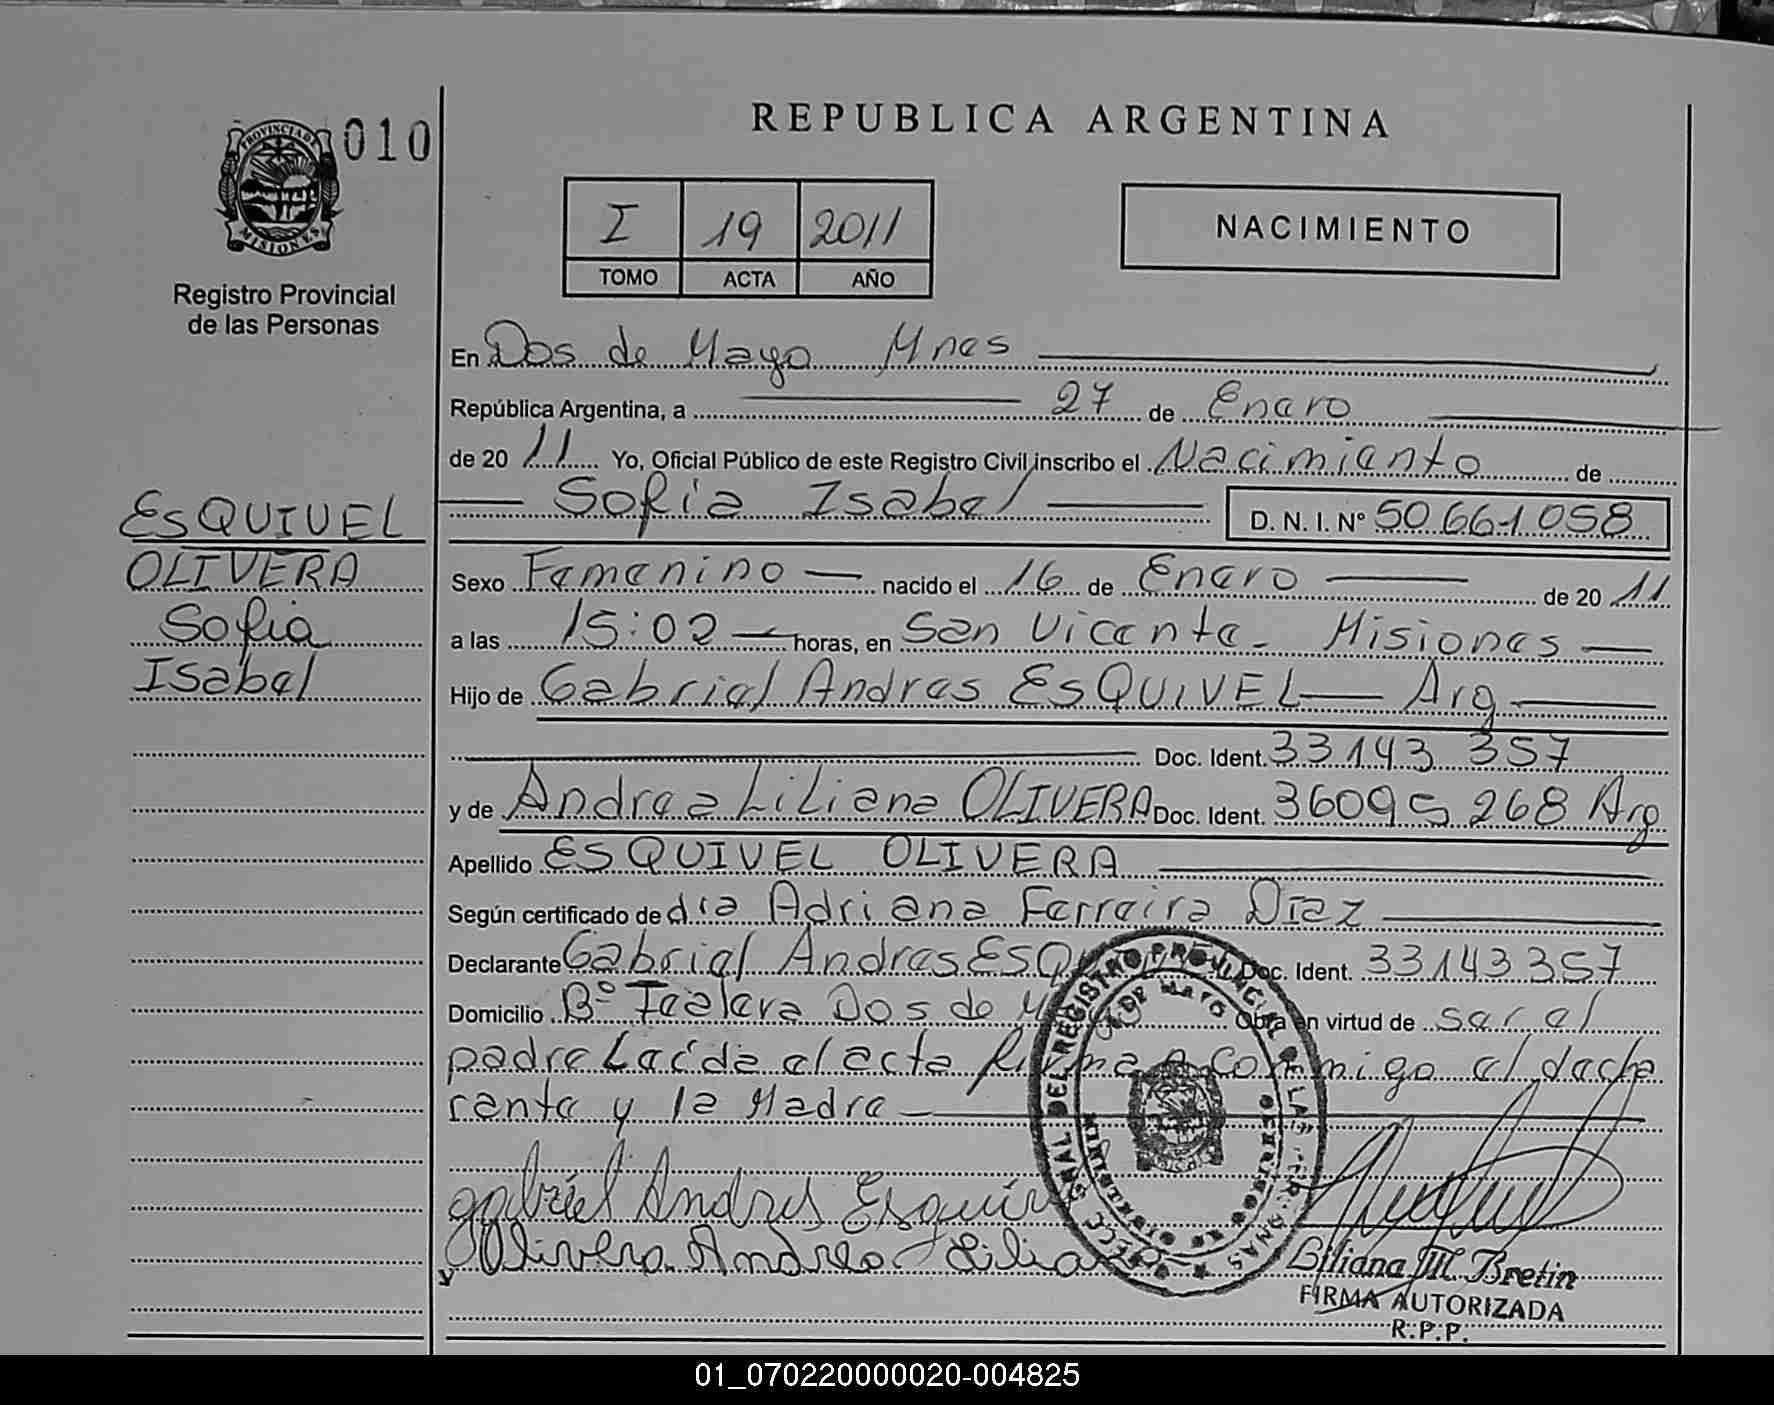 REPUBLICA ARGENTINA
PROVINCIA DE MISIONES
010
I 19 2011
TOMO ACTA AÑO
NACIMIENTO
Registro Provincial
de las Personas
En Dos de Mayo Mnes
República Argentina, a 27 de Enero
de 2011 Yo, Oficial Público de este Registro Civil inscribo el Nacimiento de
Sofia Isabel D. N. I. Nº 50.661.058
ESQUIVEL
OLIVERA
Sofia
Isabel
Sexo Femenino nacido el 16 de Enero de 2011
a las 15:02 horas, en San Vicente - Misiones
Hijo de Gabriel Andres ESQUIVEL Arg
Doc. Ident. 33143 357
y de Andrea Liliana OLIVERA Doc. Ident. 36095 268 Arg
Apellido ESQUIVEL OLIVERA
Según certificado de dra Adriana Ferreira Diaz
Declarante Gabriel Andres Doc. Ident. 33143357
Domicilio Bº Dos de Obra en virtud de ser el
padre Leida el acta Firman conmigo el decla
rante y la Madre
gabriel Andres
Olivera Andrea Lilia
DE MAYO
Liliana M. Bretin
FIRMA AUTORIZADA
R.P.P.
01_070220000020-004825